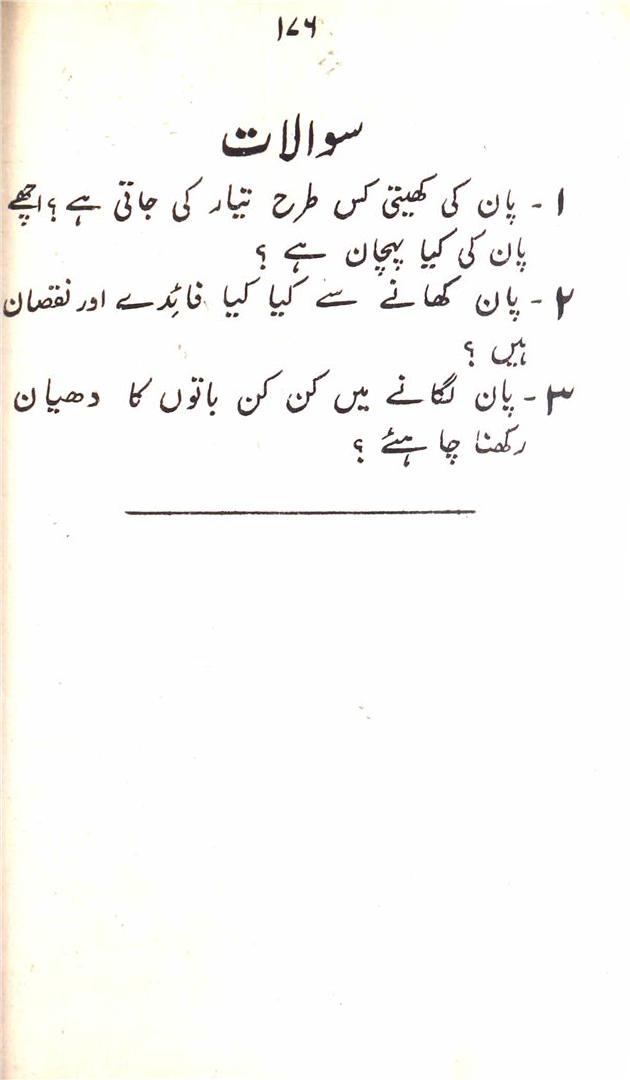 ۱۷۶
سوالات
۱ - پان کی کھیتی کس طرح تیار کی جاتی ہے ؟ اچھے
پان کی کیا پہچان ہے ؟
۲ - پان کھانے سے کیا کیا فائدے اور نقصان
ہیں ؟
۳ - پان لگانے میں کن کن باتوں کا دھیان
رکھنا چاہئے ؟